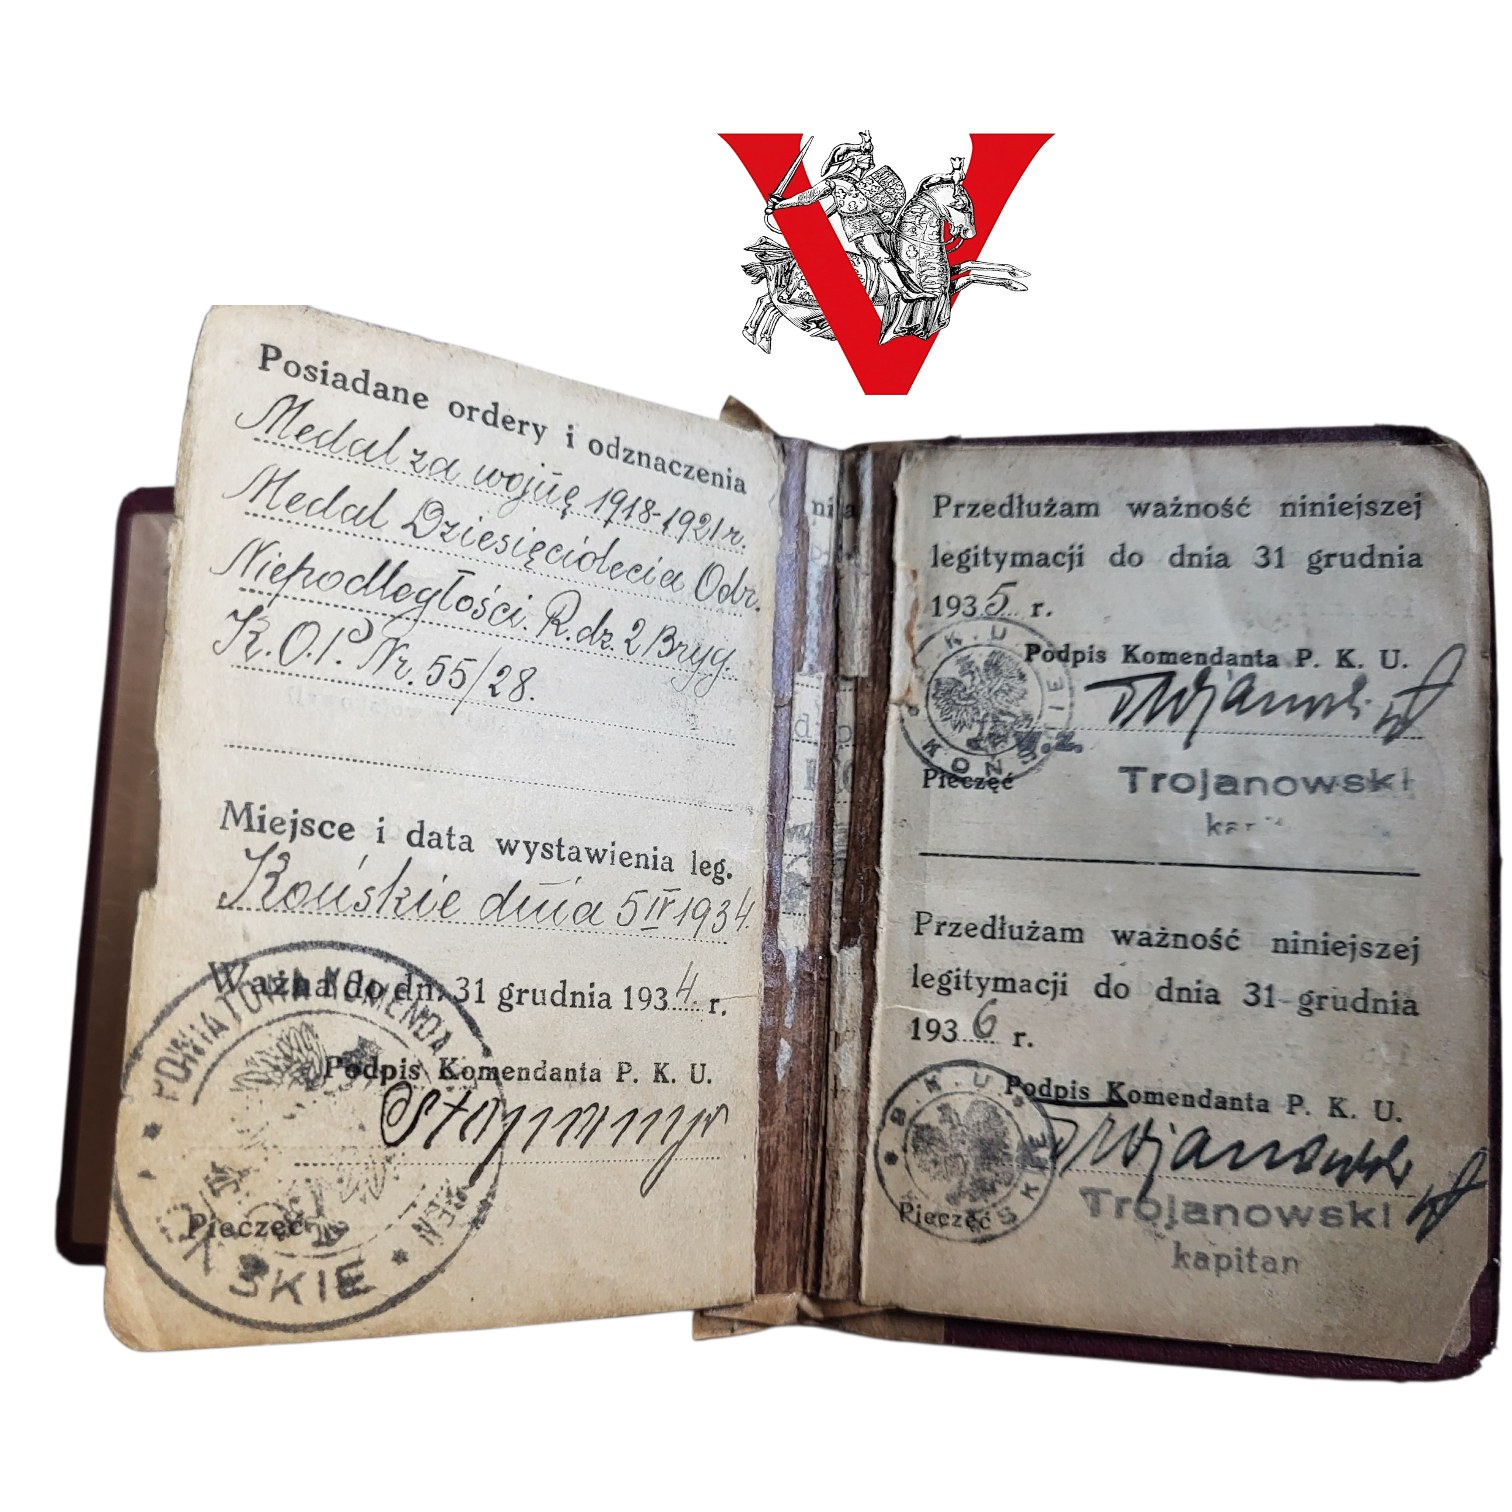 V
Posiadane ordery i odznaczenia
Medal za wojnę 1918-1921 r.
Medal Dziesięciolecia Odr.
Niepodległości R. dz. 2 Bryg.
K.O.P. Nr. 55/28.
Miejsce i data wystawienia leg.
Końskie dnia 5 IV 1934.
Ważna do dn. 31 grudnia 1934 r.
Podpis Komendanta P. K. U.
Pieczęć
POWIATOWA KOMENDA
SKIE
Przedłużam ważność niniejszej
legitymacji do dnia 31 grudnia
1935 r.
Podpis Komendanta P. K. U.
Trojanowski
w.z.
Pieczęć
K.U.
KOŃSKIE
Trojanowski
Przedłużam ważność niniejszej
legitymacji do dnia 31 grudnia
1936 r.
Podpis Komendanta P. K. U.
Trojanowski
Pieczęć
K.U.
Trojanowski
kapitan